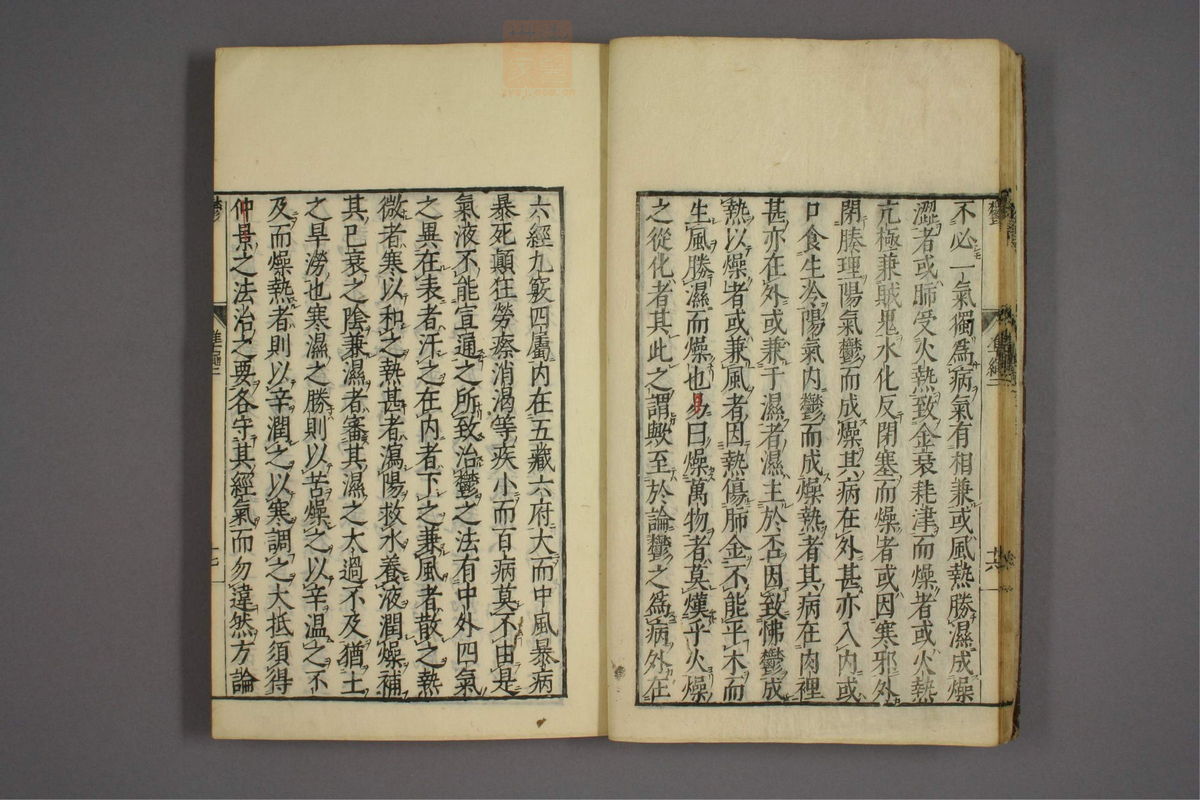 鬱
隼編二
十六
不必一氣獨爲病氣有相兼或風熱勝濕成燥
澀者或肺受火熱致金衰耗津而燥者或火熱
亢極兼賊鬼水化反閉塞而燥者或因寒邪外
閉腠理陽氣鬱而成燥其病在外甚亦入內或
口食生冷陽氣內鬱而成燥熱者其病在肉裡
甚亦在外或兼于濕者濕主於否因致怫鬱成
熱以燥者或兼風者因熱傷肺金不能平木而
生風勝濕而燥也易曰燥萬物者莫熯乎火燥
之從化者其此之謂歟至於論鬱之爲病外在
六經九竅四屬內在五藏六府大而中風暴病
暴死顛狂勞瘵消渴等疾小而百病莫不由是
氣液不能宣通之所致治鬱之法有中外四氣
之異在表者汗之在内者下之兼風者散之熱
微者寒以和之熱甚者瀉陽救水養液潤燥補
其已衰之陰兼濕者審其濕之太過不及猶土
之旱澇也寒濕之勝則以苦燥之以辛温之不
及而燥熱者則以辛潤之以寒調之大抵須得
仲景之法治之要各守其經氣而勿違然方論
鬱
十七